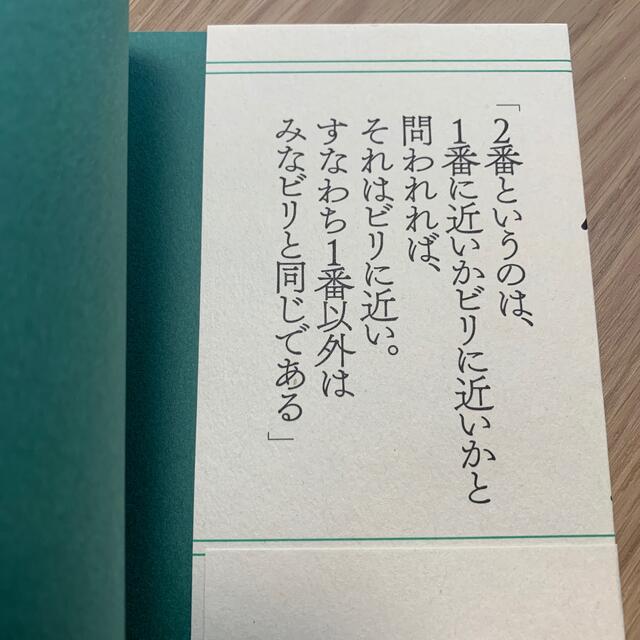 「2番というのは、
1番に近いかビリに近いかと
問われれば、
それはビリに近い。
すなわち1番以外は
みなビリと同じである」